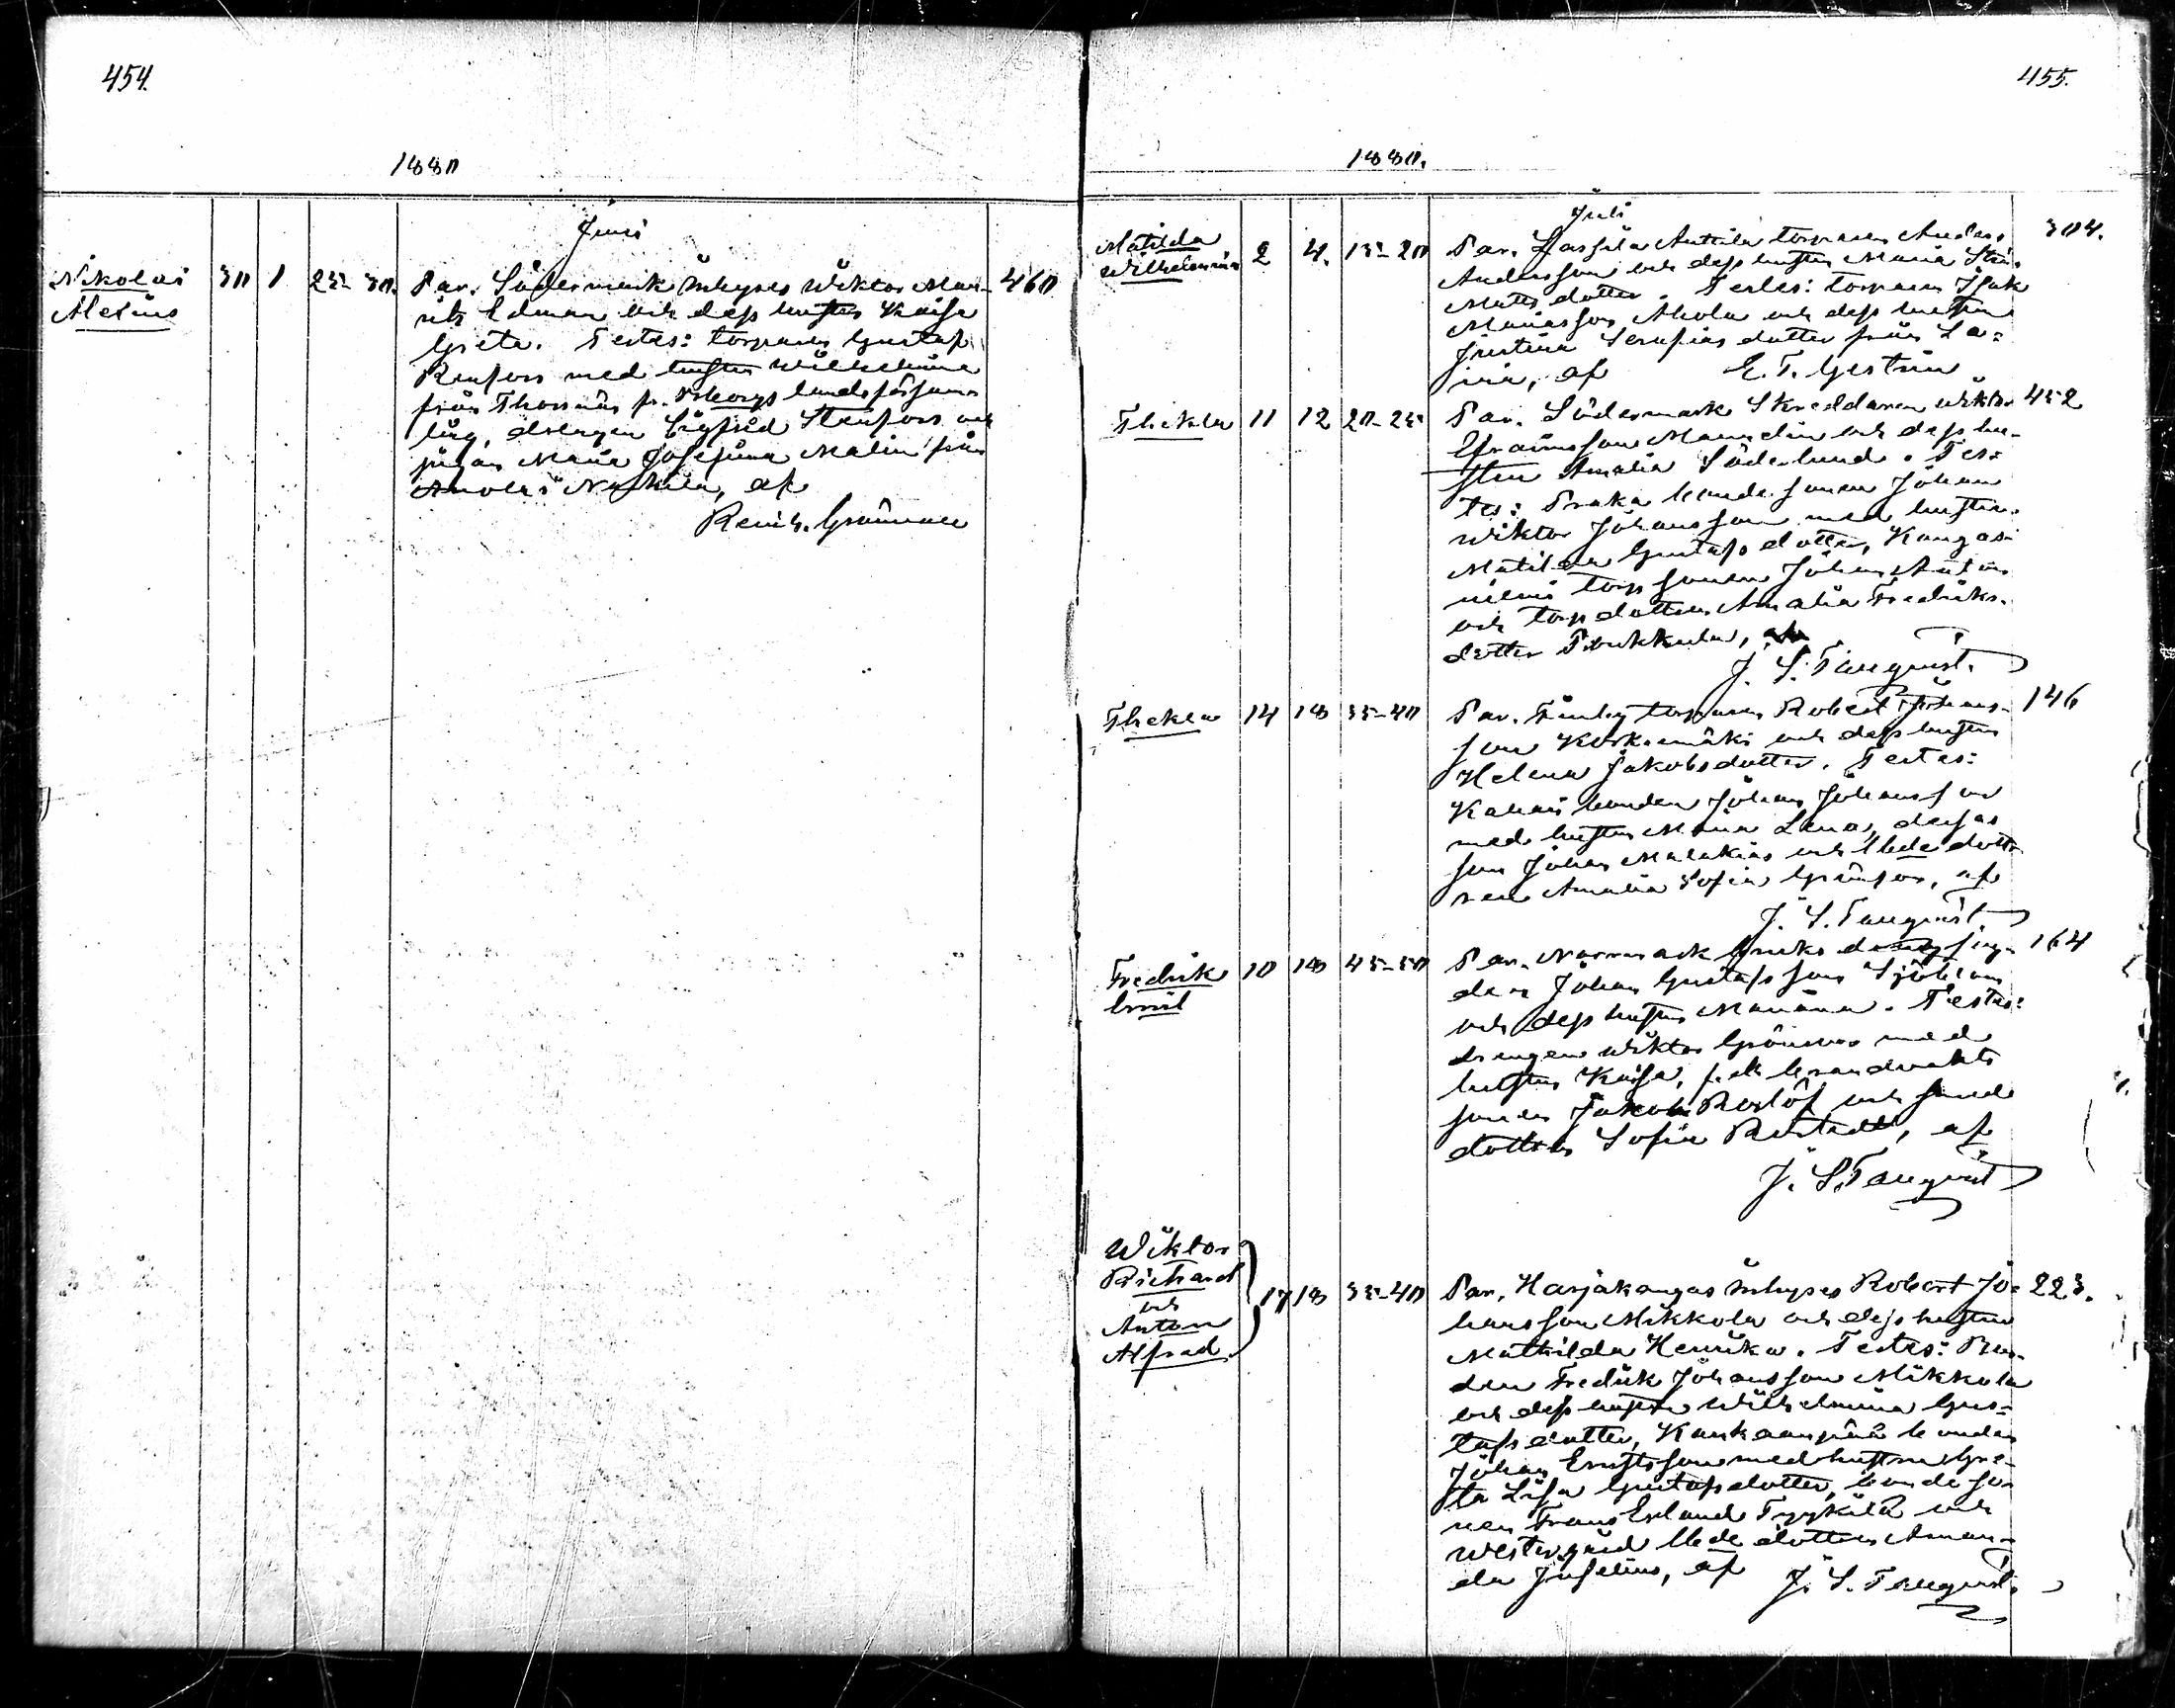 454.
1880
Juni
Nikolai
Alexius
30 1 25-30.
Par. Södermark inhyses Wiktor Mau-
ritz Edman och dess hustru Kaisa
Greta. Testes: torparen Gustaf
Renfors med hustru Wilhelmina
från Thorsnäs fr. Kborgs landsförsam-
ling, drängen Sigfrid Stenfors och
pigan Maria Josefina Malin från
Anola i Nakkila, af
Reinh. Grönvall
460
455.
1880.
Juli
Matilda
Wilhelmina
2 4. 15-20
Par. Lassila Anttila torparen Anders
Andersson och dess hustru Maria Stin.
Matts dotter. Testes: torparen Isak
Mariasson Ahola och dess hustru
Justina Serafias dotter från La-
via, af E. T. Gestrin
304.
Thekla
11 12 20-25
Par. Södermark Skräddaren Wiktor
Efraimsson Mandelin och dess hu-
stru Amalia Söderlund. Tes-
tes: Praka bonde sonen Johan
Wiktor Johansson med hustru
Matilda Gustafs dotter, Kangas-
niemi torp sonen Johan Anton
och torp dottern Amalia Fredriks-
dotter Pirukkula, af
J. S. Tanqvist.
452
Thekla
14 18 35-40
Par. Finby torparen Robert Johans-
son Korkiamäki och dess hustru
Helena Jakobsdotter. Testes:
Kahari bonden Johan Johansson
med hustru Maria Lena, desses
son Johan Malakias och bde dott-
ren Amalia Sofia Grönfors, af
J. S. Tanqvist
146
Fredrik
Emil
10 18 45-50
Par. Norrmark bruks dräng
Johan Gustafsson Sjöblom
och dess hustru Mariana. Testes:
drängen Wiktor Grönroos med
hustru Kaisa, f.d. brandvakts
sonen Jakob Roslöf och smeds
dottern Sofia Rostedt, af
J. S. Tanqvist
164
Wiktor
Richard
och
Anton
Alfred
17 18 35-40
Par. Harjakangas inhyses Robert Jo-
hansson Mikkola och dess hustru
Mathilda Henrika. Testes: Bon-
den Fredrik Johansson Mikkola
och dess hustru Wilhelmina Gus-
tafsdotter, Kankaanpää bonden
Johan Ernstsson med hustru Gre-
ta Lisa Gustafsdotter, bonde so-
nen Frans Erland Tyykilä och
Westergård bde dottern Aman-
da Juselius, af J. S. Tanqvist
223.